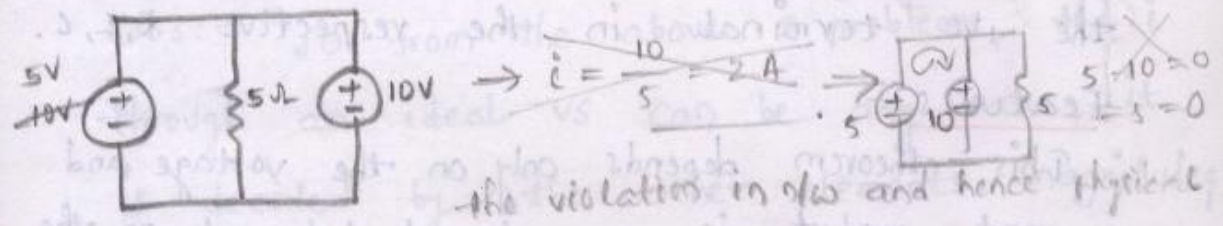 5V
10V
5Ω
10V
→ i = 10/5 = 2 A
→
5
10
5
5 - 10 = 0
- 5 = 0
the violation in n/w and hence physical